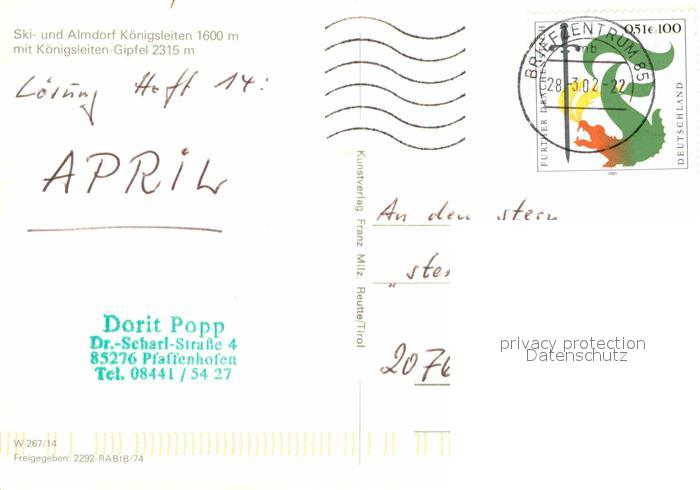 Ski- und Almdorf Königsleiten 1600 m
mit Königsleiten-Gipfel 2315 m
Lösung Heft 14:
APRIL
Dorit Popp
Dr.-Scharl-Straße 4
85276 Pfaffenhofen
Tel. 08441 / 54 27
W 267/14
Freigegeben: 2292-RABtB/74
Kunstverlag Franz Milz, Reutte/Tirol
BRIEFZENTRUM 85
mb
28.-3.02-22
FURTHER DRACHENSTICH
0,51€ 100
DEUTSCHLAND
2001
An den stern
„ster
2076
privacy protection
Datenschutz